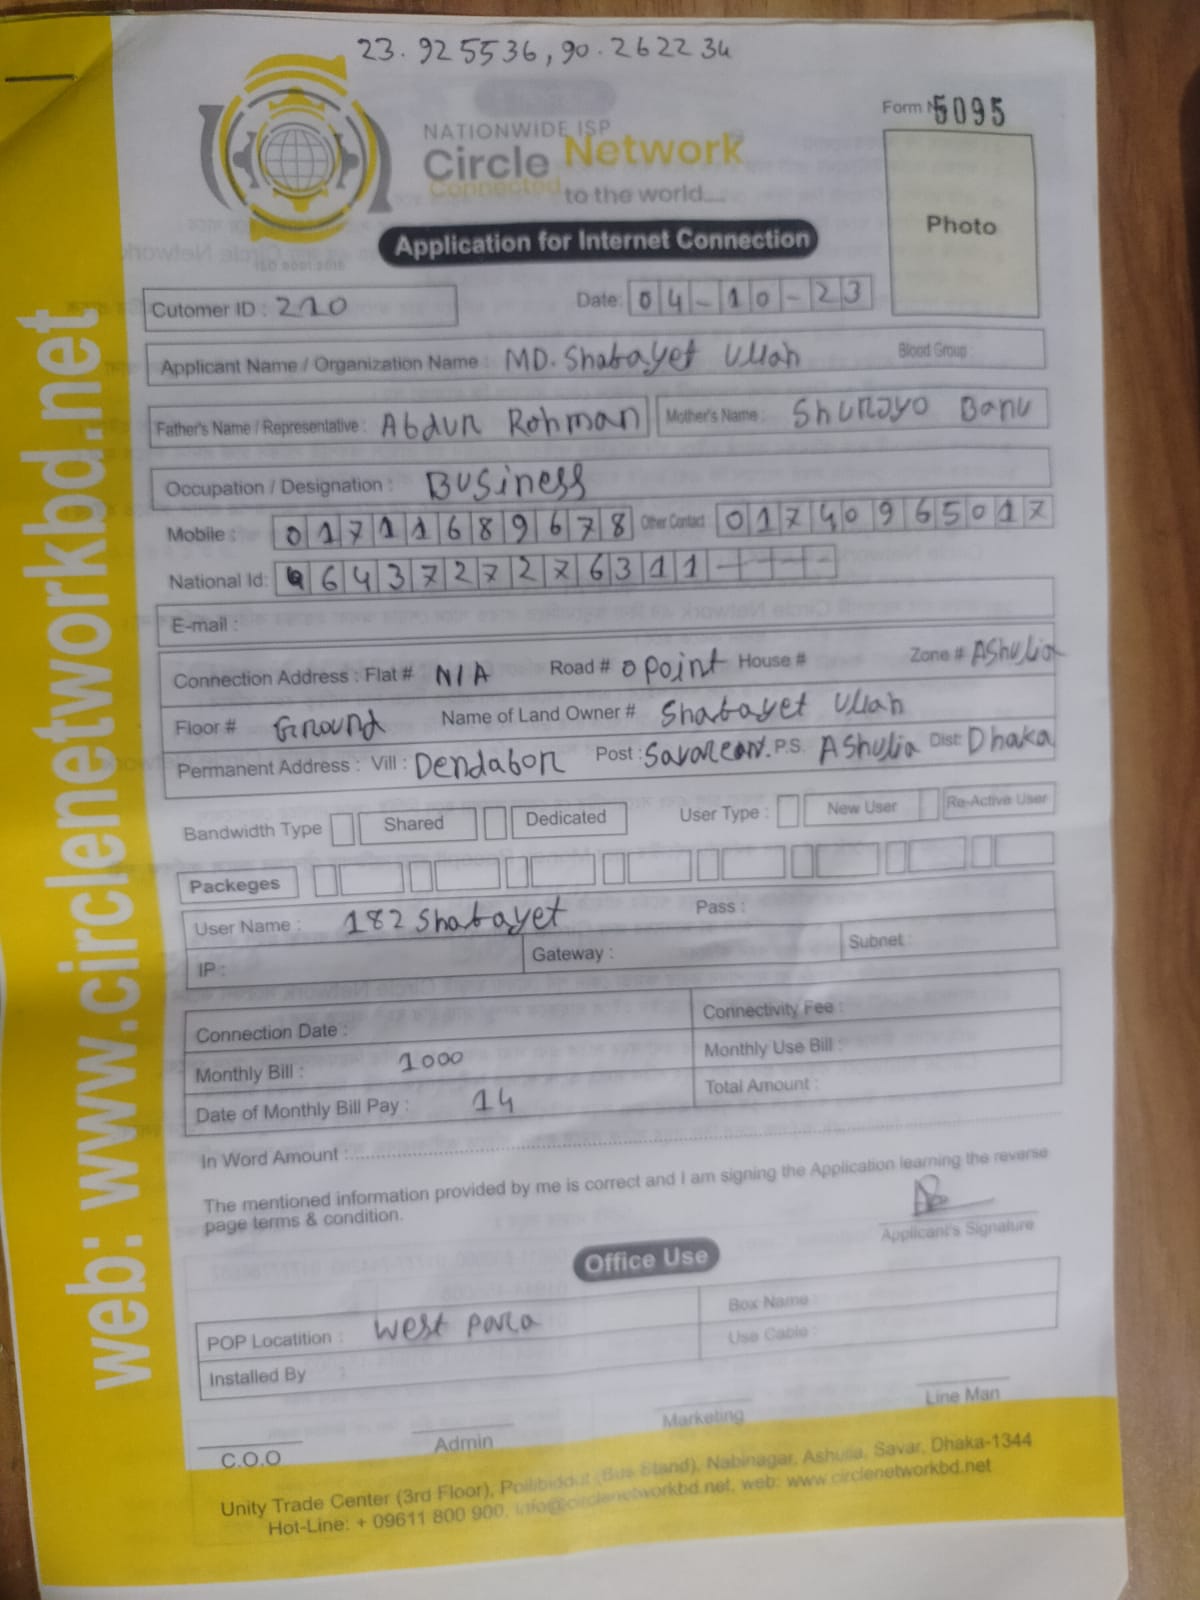 23.925536,90.262234
Form N 5095
NATIONWIDE ISP
Circle Network
Connected to the world....
Photo
Application for Internet Connection
ISO 9001:2015
Cutomer ID : 210
Date: 04-10-23
Applicant Name / Organization Name : MD. Shabayet Ullah Blood Group :
Father's Name / Representative : Abdur Rohman Mother's Name : Shurayo Banu
Occupation / Designation : Business
Mobile : 01711689678 Other Contact : 01740965017
National Id: 643727276311----
E-mail :
Connection Address : Flat # N/A Road # 0 point House # Zone # Ashulia
Floor # Ground Name of Land Owner # Shabayet Ullah
Permanent Address : Vill : Dendabor Post : Savarcant. P.S. Ashulia Dist: Dhaka
Bandwidth Type Shared Dedicated User Type : New User Re-Active User
Packeges
User Name : 182 Shabayet Pass :
IP : Gateway : Subnet :
Connection Date : Connectivity Fee :
Monthly Bill : 1000 Monthly Use Bill :
Date of Monthly Bill Pay : 14 Total Amount :
In Word Amount :
The mentioned information provided by me is correct and I am signing the Application learning the reverse
page terms & condition.
Applicant's Signature
Office Use
POP Locatition : West para Box Name :
Installed By : Use Cable :
C.O.O Admin Marketing Line Man
Unity Trade Center (3rd Floor), Pollibiddut (Bus Stand), Nabinagar, Ashulia, Savar, Dhaka-1344
Hot-Line: + 09611 800 900, info@circlenetworkbd.net, web: www.circlenetworkbd.net
web: www.circlenetworkbd.net